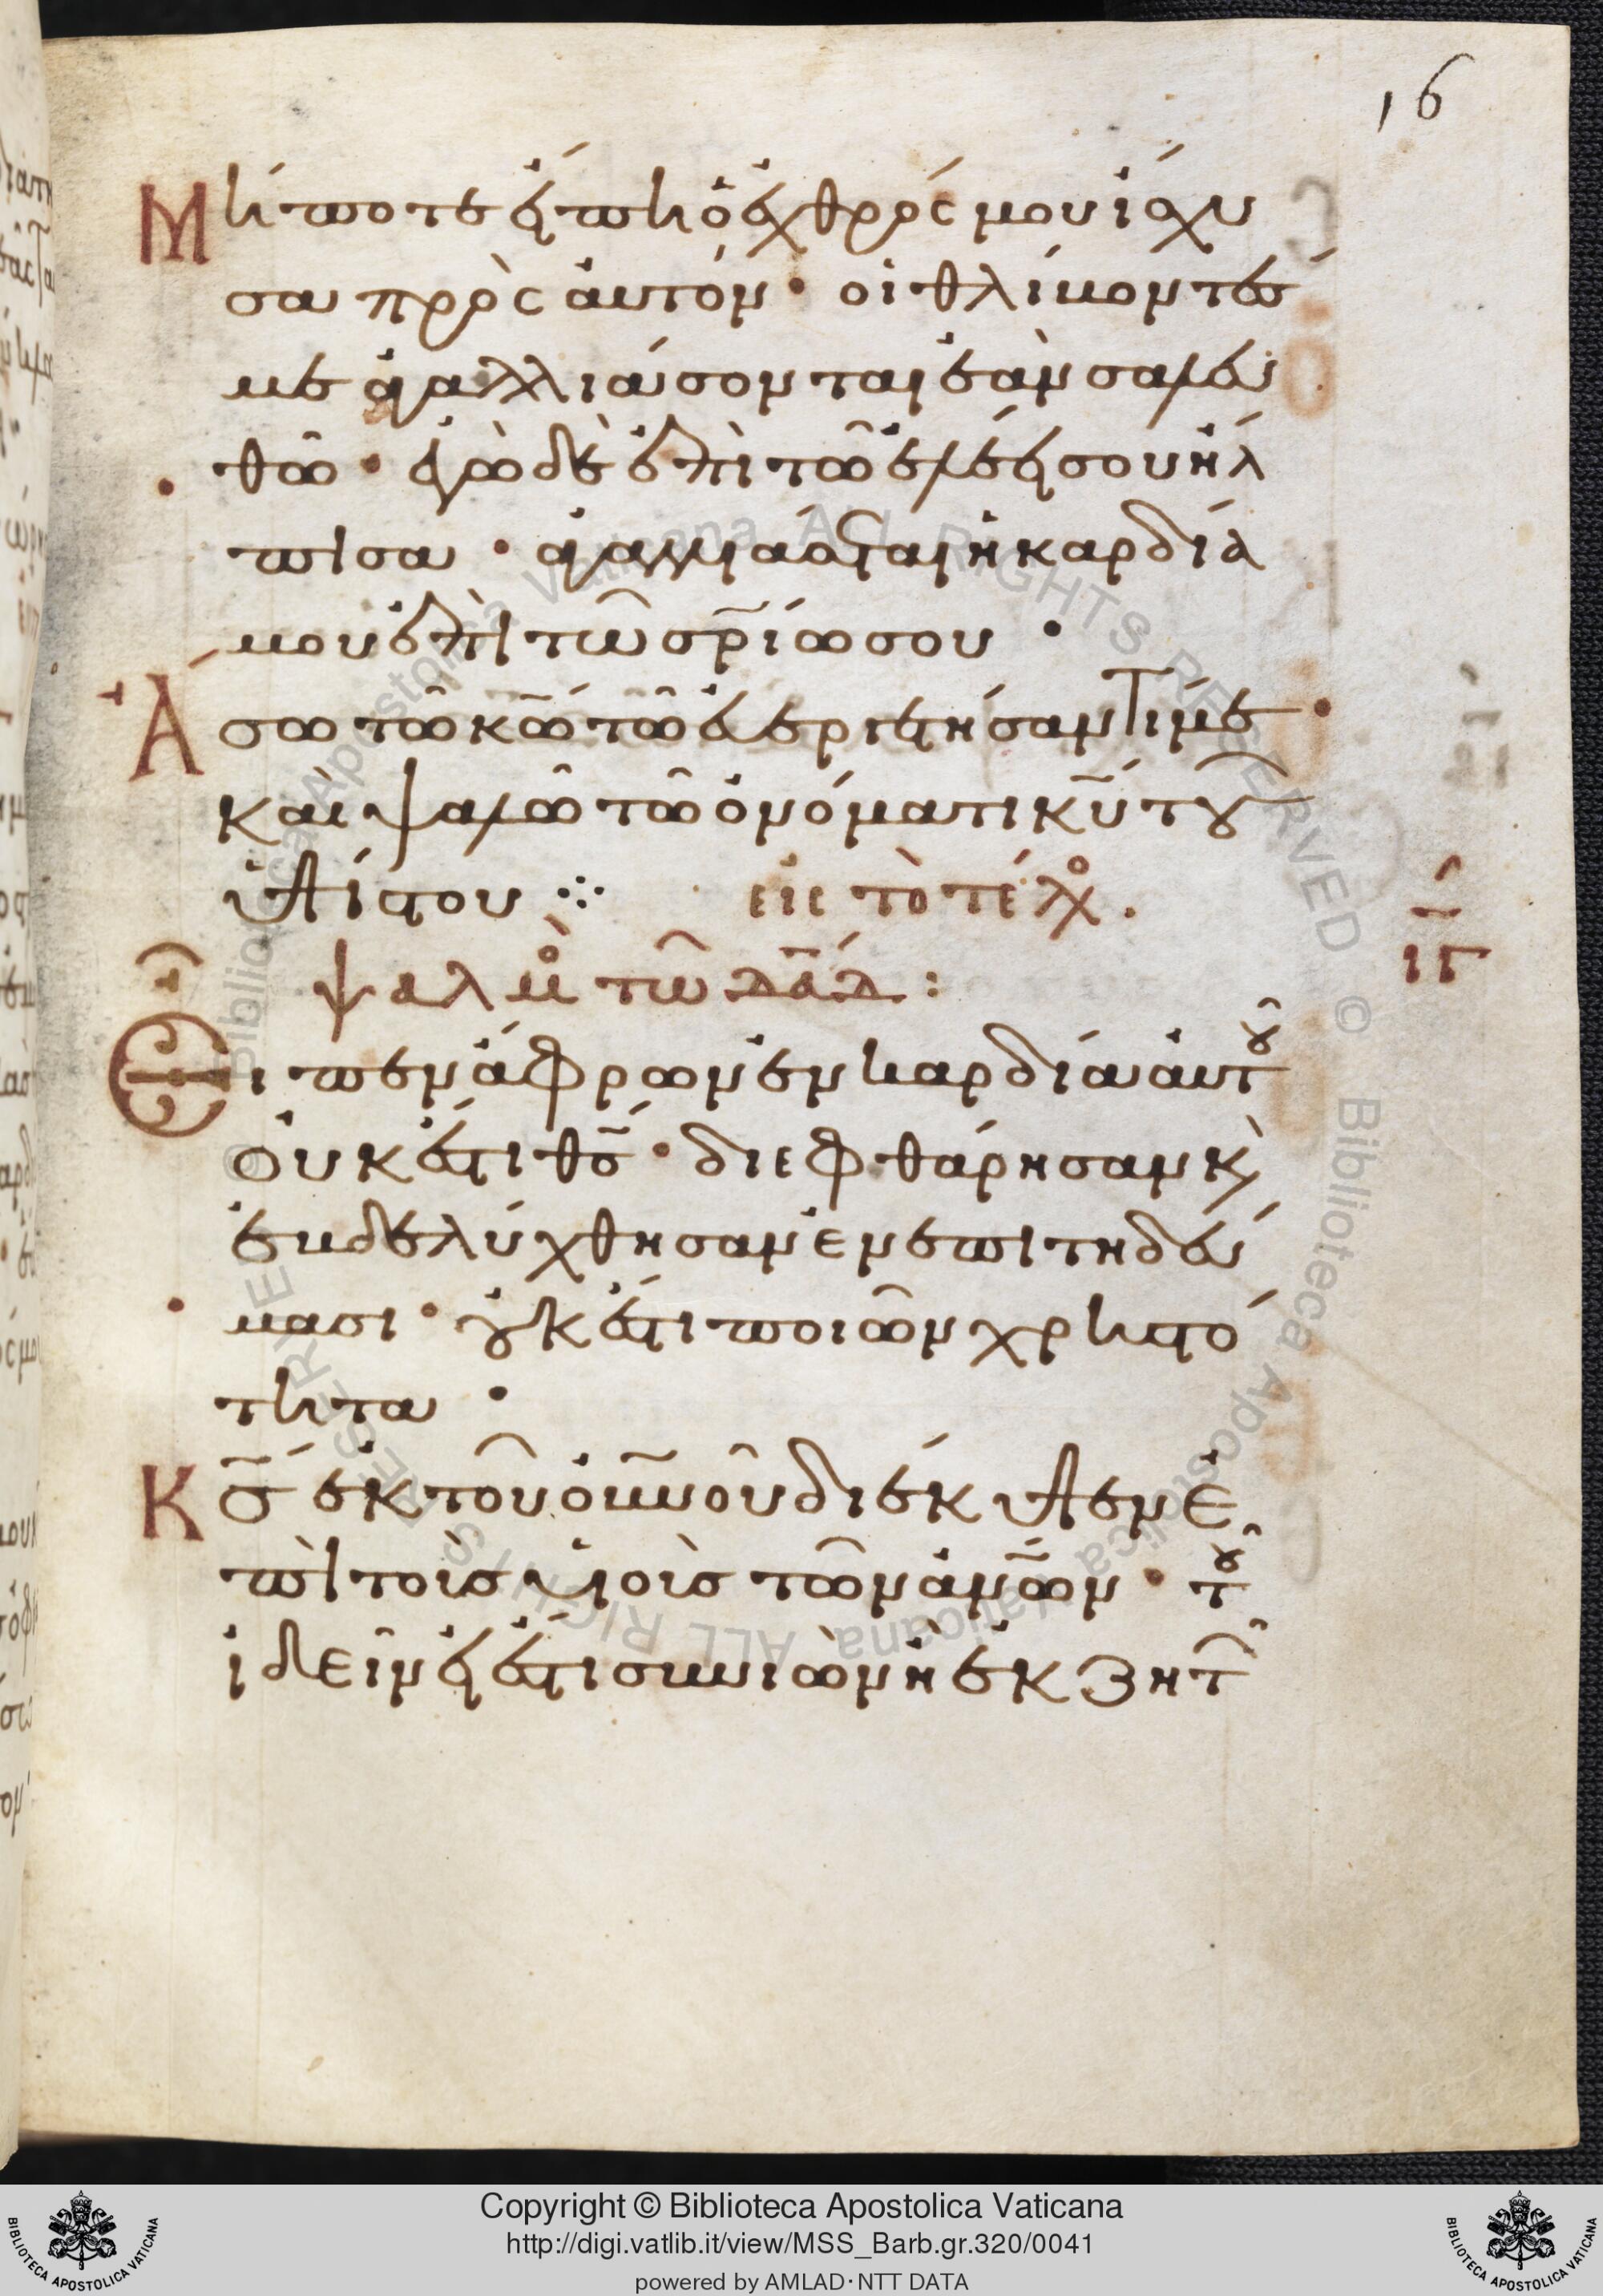 16
Μήποτε εἴπη ὁ ἐχθρός μου ἴσχυ
σα πρὸς αὐτόν · οἱ θλίβοντές
με ἀγαλλιάσονται ἐὰν σαλευ
θῶ · ἐγὼ δὲ ἐπὶ τῶ ἐλέει σου ἤλ
πισα · ἀγαλλιάσεται ἡ καρδία
μου ἐπὶ τῶ σ̅ρ̅ί̅ω̅ σου ·
Ἄσω τῶ κ̅ω̅ τῶ εὐεργετήσαντί με
καὶ ψαλῶ τῶ ὀνόματι κ̅υ̅ τοῦ
ὑψίστου ⁘ εἰς τὸ τέλος.
ψαλμὸς τῶ δ̅α̅δ̅ :
ιγ
Εἶπεν ἄφρων ἐν καρδία αὐτοῦ
οὐκ ἔστι θ̅ς̅ · διεφθάρησαν καὶ
ἐβδελύχθησαν ἐν ἐπιτηδεύ
μασι · οὐκ ἔστι ποιῶν χρηστό
τητα ·
Κ̅ς̅ ἐκ τοῦ ο̅υ̅ν̅οῦ διέκυψεν ἐ
πὶ τοὺς υἱοὺς τῶν ἀ̅ν̅ω̅ν · τοῦ
ἰδεῖν εἰ ἔστι συνιὼν ἢ ἐκζητῶν
Copyright © Biblioteca Apostolica Vaticana
http://digi.vatlib.it/view/MSS_Barb.gr.320/0041
powered by AMLAD·NTT DATA
BIBLIOTECA APOSTOLICA VATICANA
BIBLIOTECA APOSTOLICA VATICANA